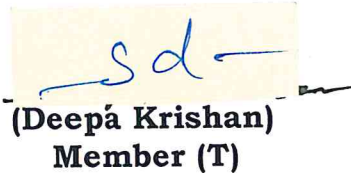 sd-
(Deepa Krishan)
Member (T)